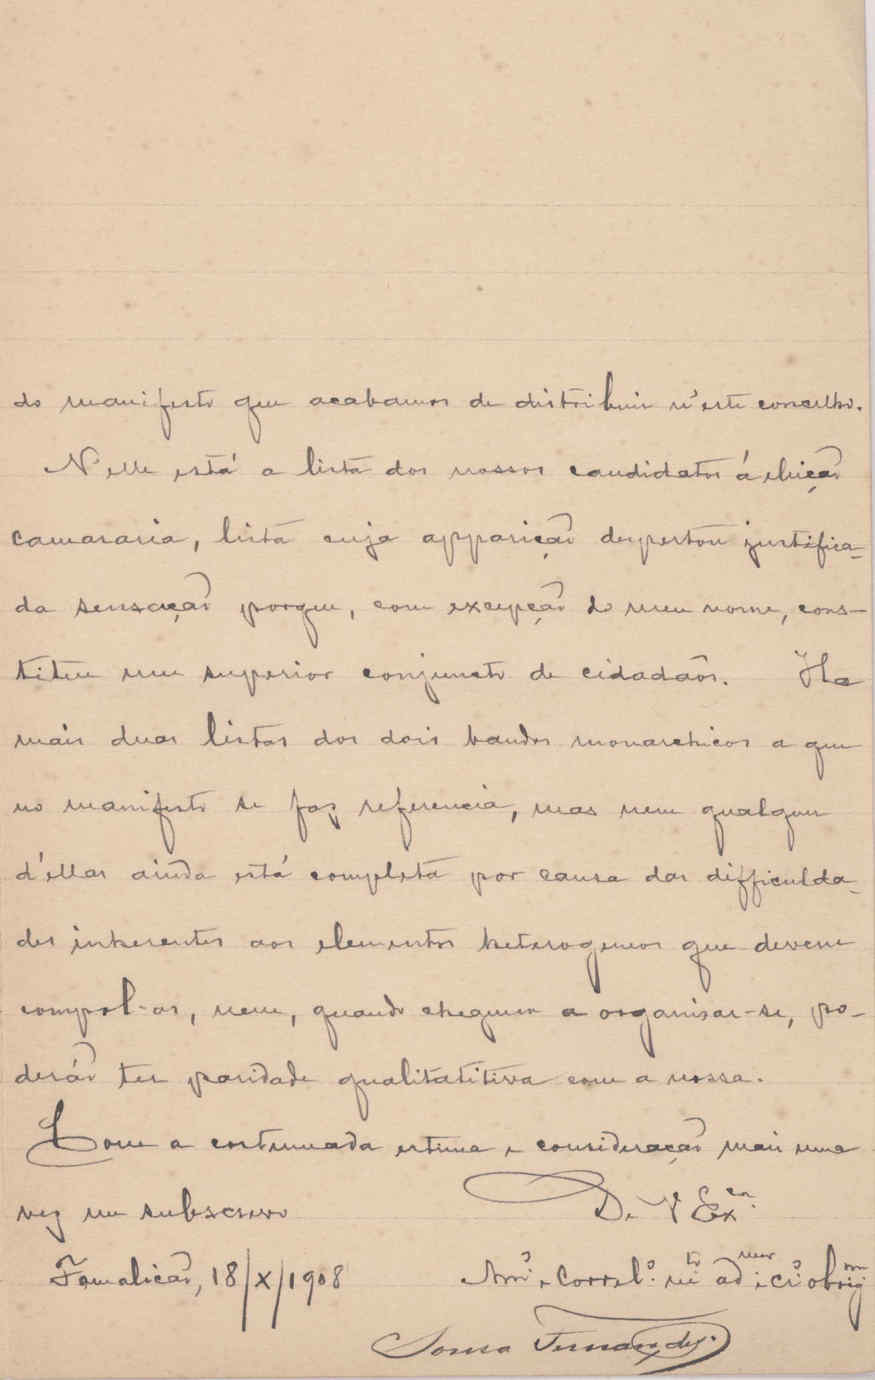 do manifesto que acabamos de distribuir n'este concelho.
N'elle está a lista dos nossos candidatos á eleição
camararia, lista cuja apparição despertou justifica-
da sensação porque, com excepção do meu nome, cons-
titue um superior conjuncto de cidadãos. Ha
mais duas listas dos dois bandos monarchicos a que
no manifesto se faz referencia, mas nem qualquer
d'ellas ainda está completa por causa das difficulda-
des inherentes aos elementos heterogeneos que devem
compol-as, nem, quando cheguem a organisar-se, po-
derão ter paridade qualitatitiva com a nossa.
Com a continuada estima e consideração mais uma
vez me subscrevo De V Exᶜⁱᵃ
Famalicão, 18/X/1908 Amº e Correlº. mᵗᵒ adᵐᵒʳ e crº obrigᵐᵒ
Sousa Fernandes.